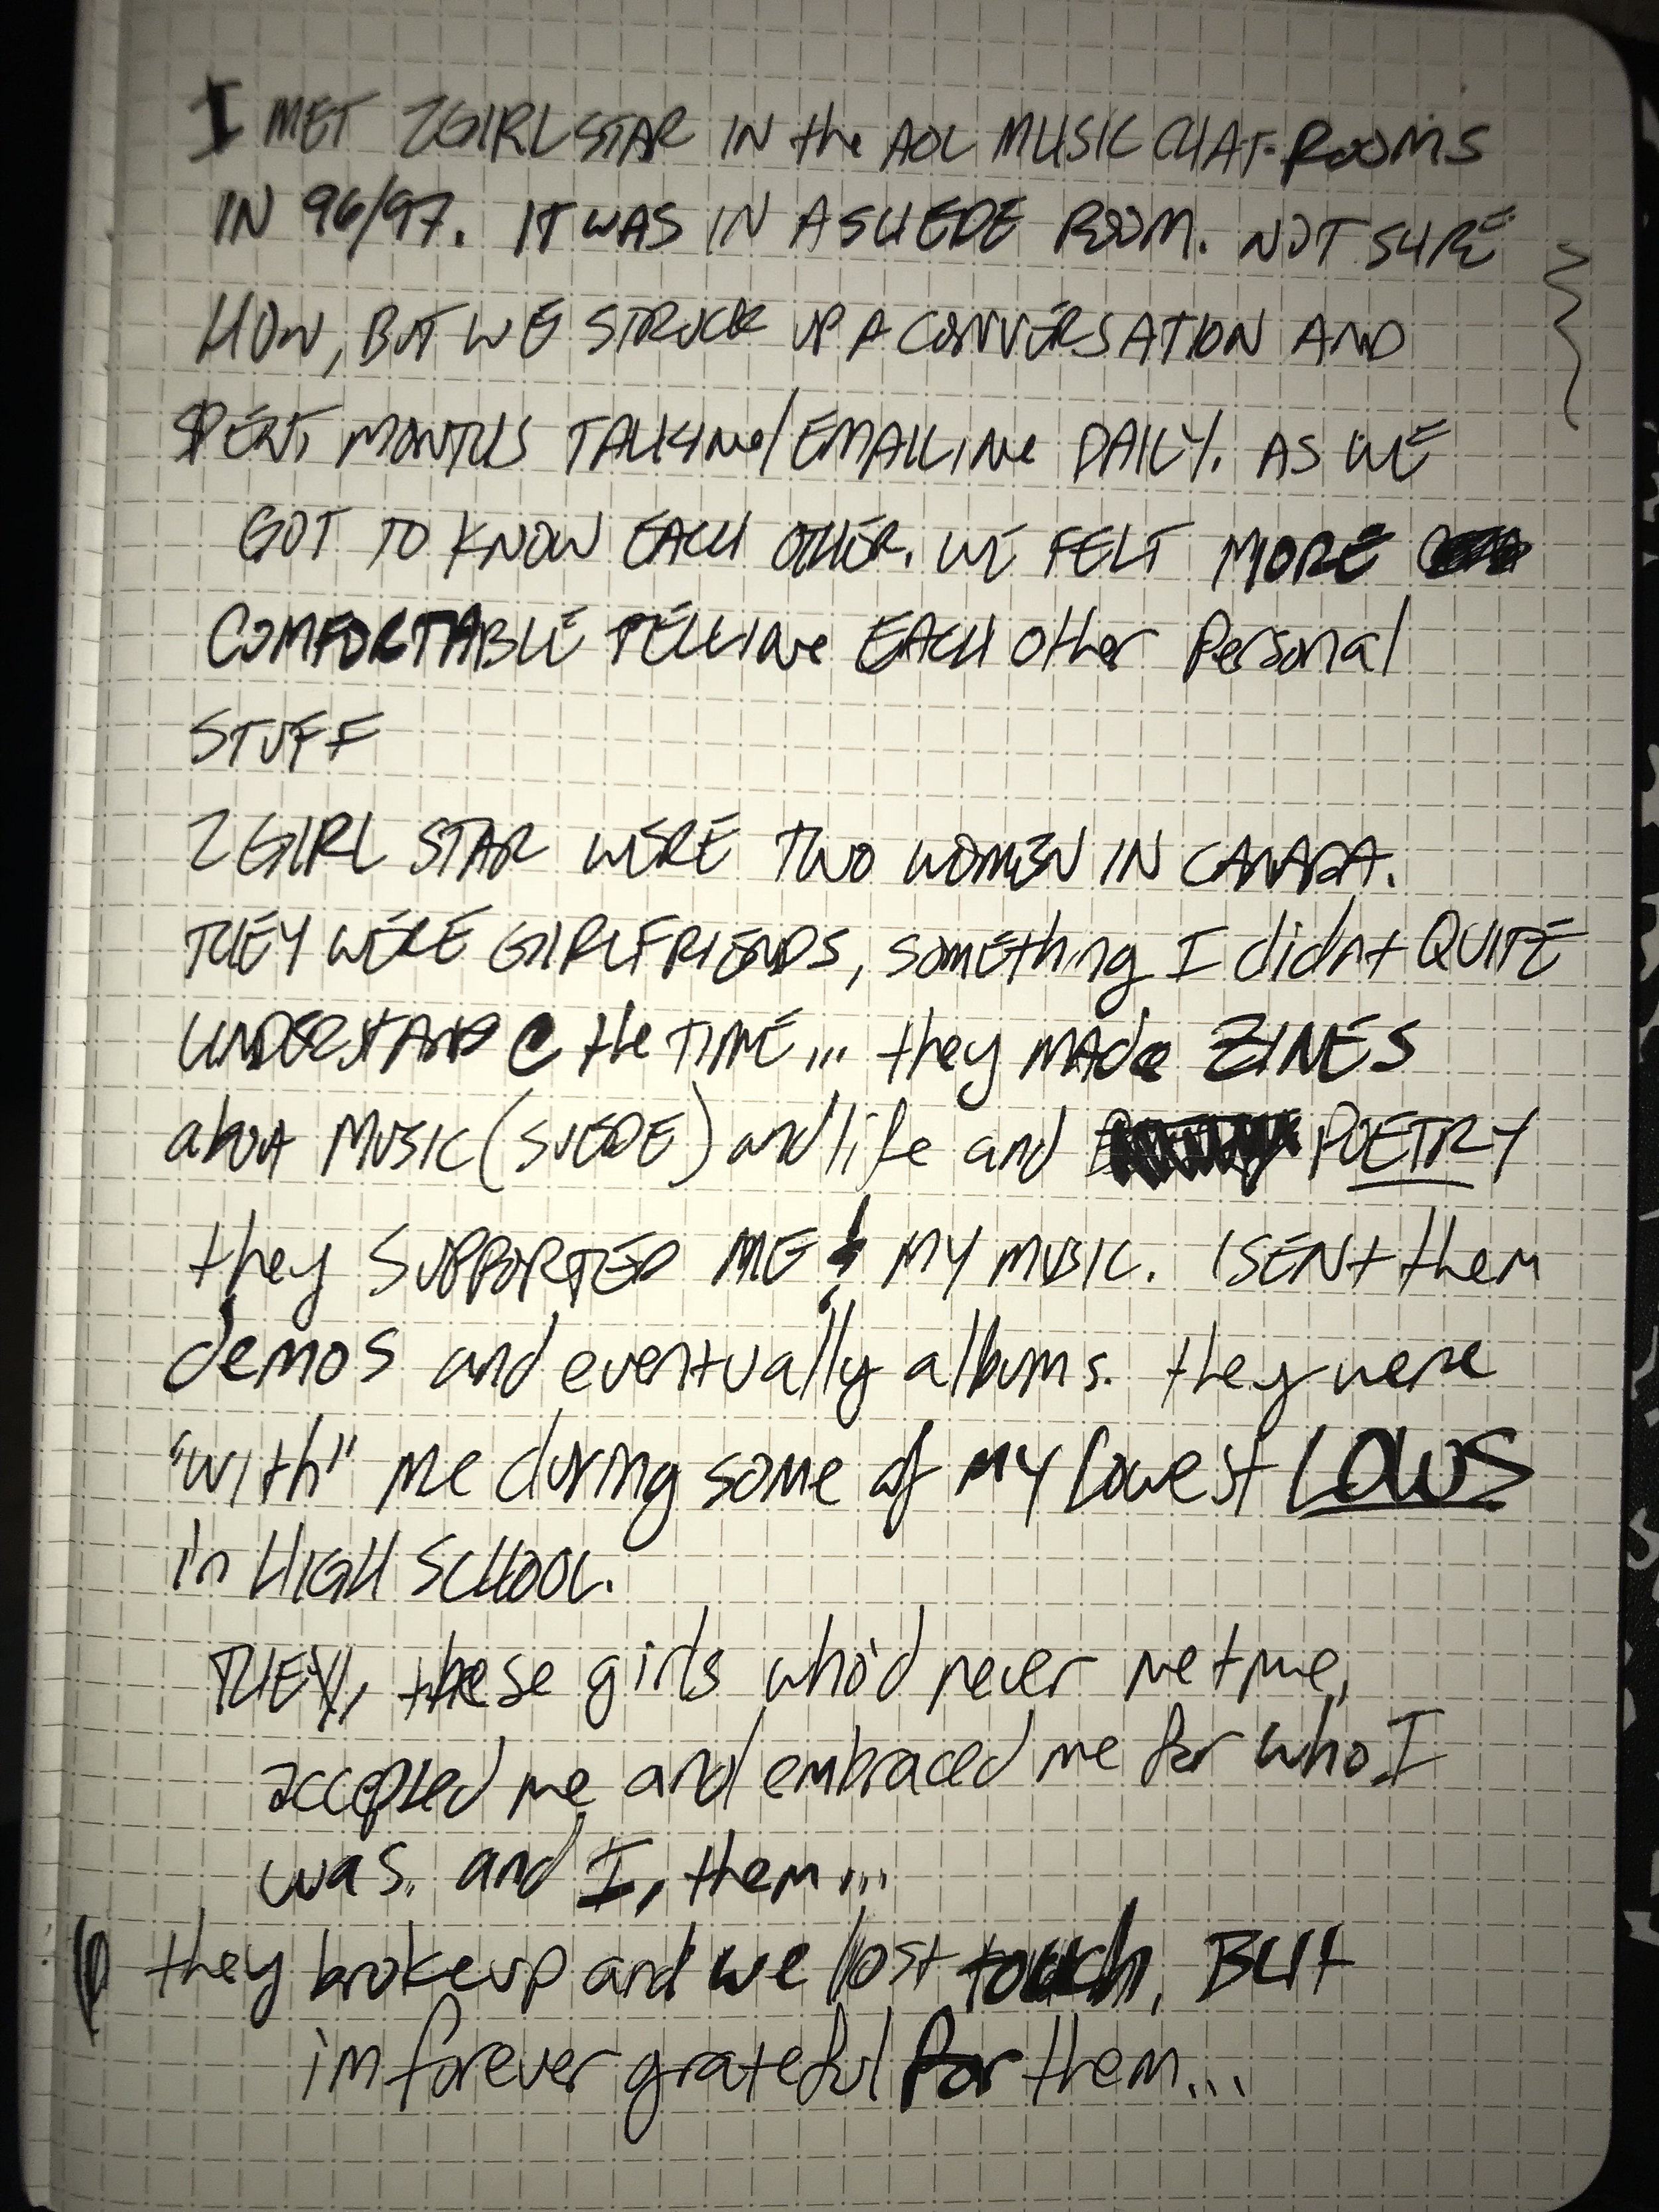 I MET ZGIRLSTAR IN the AOL MUSIC CHAT-ROOMS
IN 96/97. IT WAS IN A SUEDE ROOM. NOT SURE
HOW, BUT WE STRUCK UP A CONVERSATION AND
SPENT MONTHS TALKING/EMAILING DAILY. AS WE
GOT TO KNOW EACH OTHER. WE FELT MORE
COMFORTABLE TELLING EACH Other Personal
STUFF
ZGIRL STAR WERE TWO WOMEN IN CANADA.
THEY WERE GIRLFRIENDS, SOMEthing I didnt QUITE
UNDERSTAND @ the TIME... they MADe ZINES
about MUSIC (SUEDE) and life and POETRY
they SUPPORTED ME & MY MUSIC. I SENt them
demos and eventually albums. they were
"with" me during some of MY lowest LOWS
in HIGH SCHOOL.
THEY, these girls who'd never met me,
accepted me and embraced me for who I
was. and I, them...
they broke up and we lost touch, BUt
im forever grateful for them...